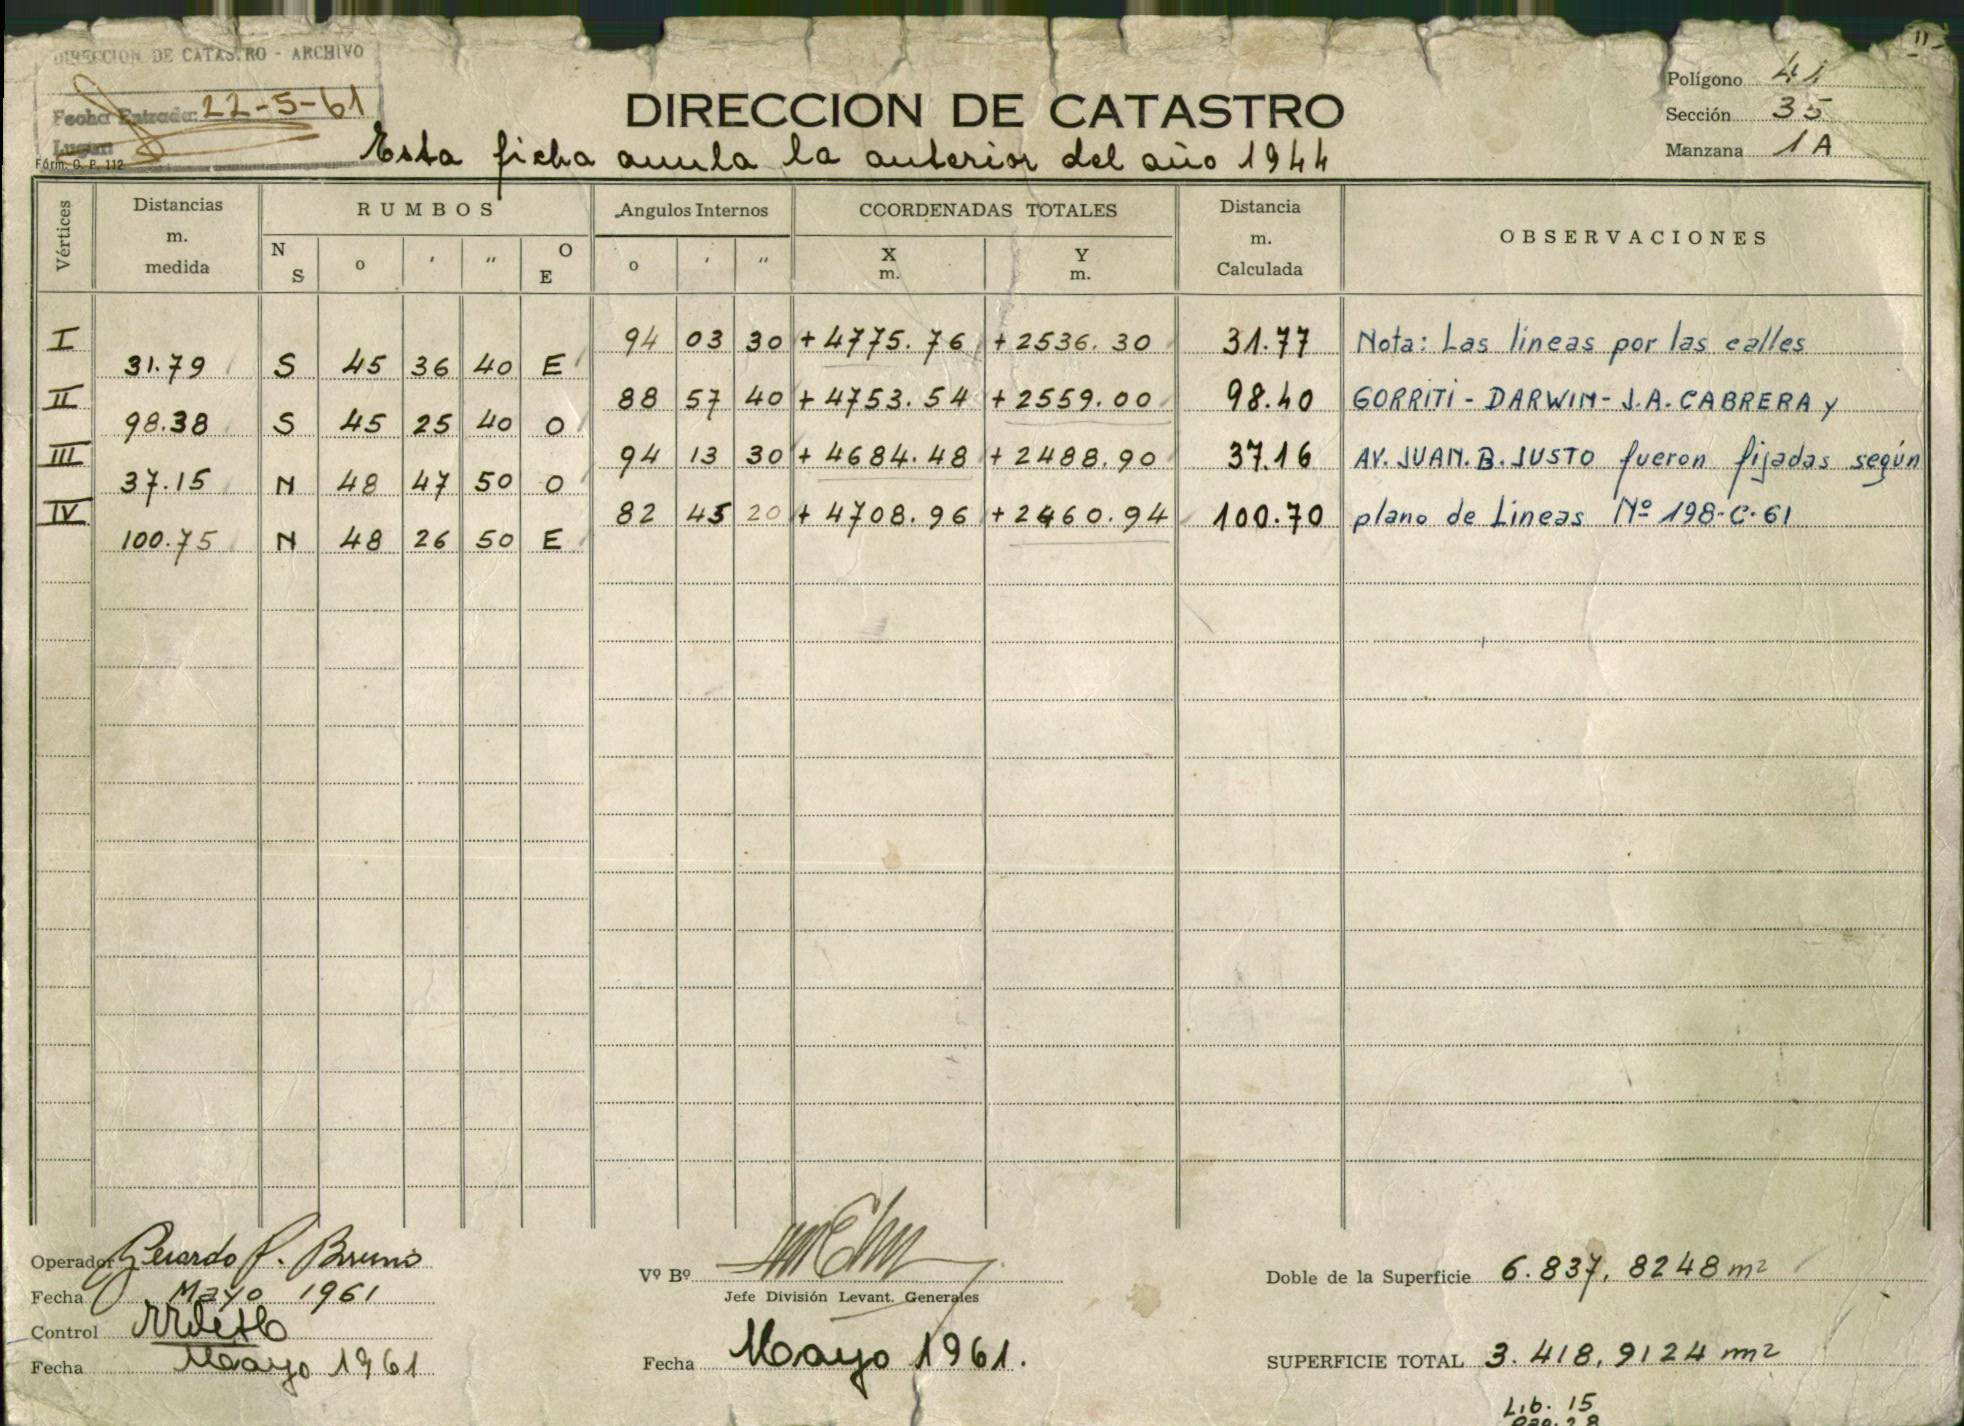 DIRECCION DE CATASTRO - ARCHIVO
Fecha Entrada: 22-5-61
Fórm. O. P. 112
DIRECCION DE CATASTRO
Esta ficha anula la anterior del año 1944
Polígono 41
Sección 35
Manzana 1A
Vértices Distancias m. medida RUMBOS Angulos Internos COORDENADAS TOTALES Distancia m. Calculada OBSERVACIONES
N S o ' '' O E o ' '' X m. Y m.
I 94 03 30 + 4775.76 + 2536.30 31.77 Nota: Las lineas por las calles
31.79 S 45 36 40 E
II 88 57 40 + 4753.54 + 2559.00 98.40 GORRITI - DARWIN - J.A. CABRERA y
98.38 S 45 25 40 O
III 94 13 30 + 4684.48 + 2488.90 37.16 AV. JUAN. B. JUSTO fueron fijadas según
37.15 N 48 47 50 O
IV 82 45 20 + 4708.96 + 2460.94 100.70 plano de Lineas Nº 198-C-61
100.75 N 48 26 50 E
Operador Gerardo P. Bruno
Fecha Mayo 1961
Control
Fecha Mayo 1961
Vº Bº
Jefe División Levant. Generales
Fecha Mayo 1961.
Doble de la Superficie 6.837,8248 m2
SUPERFICIE TOTAL 3.418,9124 m2
Lib. 15
Pag. 28